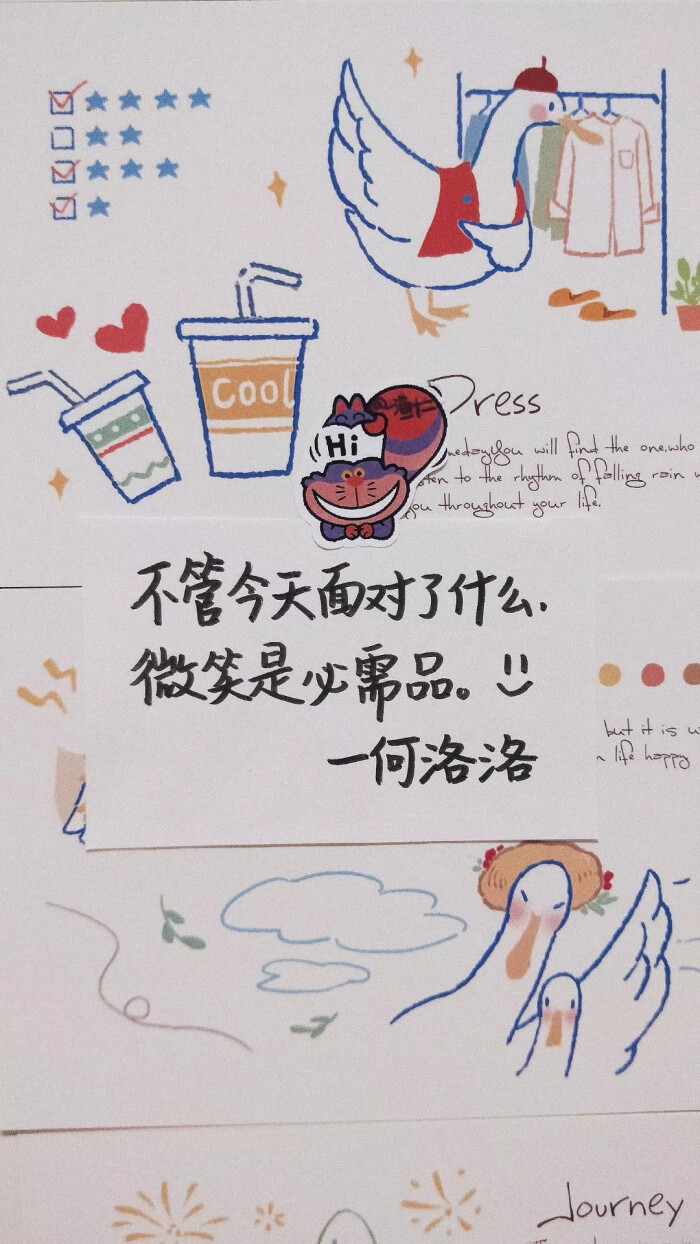 Cool
Hi
Dress
you will find the one, who
to the rhythm of falling rain
you throughout your life.
不管今天面对了什么,
微笑是必需品。
一何洛洛
but it is
life happy
Journey